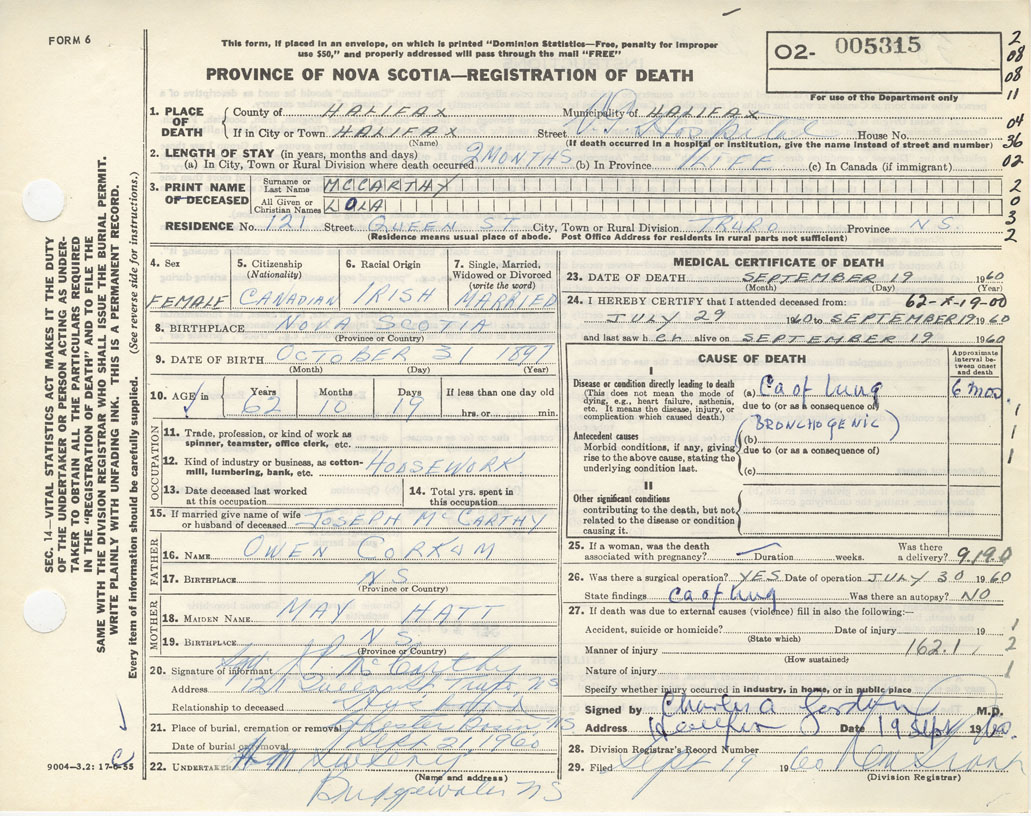 FORM 6
This form, if placed in an envelope, on which is printed "Dominion Statistics—Free, penalty for improper
use $50," and properly addressed will pass through the mail "FREE"
PROVINCE OF NOVA SCOTIA—REGISTRATION OF DEATH
O2- 005315
For use of the Department only
2
08
08
11
04
36
02
2
0
3
2
SEC. 14—VITAL STATISTICS ACT MAKES IT THE DUTY
OF THE UNDERTAKER OR PERSON ACTING AS UNDER-
TAKER TO OBTAIN ALL THE PARTICULARS REQUIRED
IN THE "REGISTRATION OF DEATH" AND TO FILE THE
SAME WITH THE DIVISION REGISTRAR WHO SHALL ISSUE THE BURIAL PERMIT.
WRITE PLAINLY WITH UNFADING INK. THIS IS A PERMANENT RECORD.
Every item of information should be carefully supplied. (See reverse side for instructions.)
1. PLACE OF DEATH County of HALIFAX Municipality of HALIFAX
If in City or Town HALIFAX Street V.G. Hospital House No.
(Name) (If death occurred in a hospital or institution, give the name instead of street and number)
2. LENGTH OF STAY (in years, months and days)
(a) In City, Town or Rural Division where death occurred 2 MONTHS (b) In Province LIFE (c) In Canada (if immigrant)
3. PRINT NAME OF DECEASED Surname or Last Name MCCARTHY
All Given or Christian Names LOLA
RESIDENCE No. 121 Street QUEEN ST City, Town or Rural Division TRURO Province N.S.
(Residence means usual place of abode. Post Office Address for residents in rural parts not sufficient)
4. Sex FEMALE
5. Citizenship (Nationality) CANADIAN
6. Racial Origin IRISH
7. Single, Married, Widowed or Divorced (write the word) MARRIED
8. BIRTHPLACE NOVA SCOTIA
(Province or Country)
9. DATE OF BIRTH OCTOBER 31 1897
(Month) (Day) (Year)
10. AGE in Years 62 Months 10 Days 19 If less than one day old
hrs. or min.
OCCUPATION
11. Trade, profession, or kind of work as
spinner, teamster, office clerk, etc.
12. Kind of industry or business, as cotton-
mill, lumbering, bank, etc. HOUSEWORK
13. Date deceased last worked
at this occupation
14. Total yrs. spent in
this occupation
15. If married give name of wife
or husband of deceased JOSEPH McCARTHY
FATHER
16. NAME OWEN CORKUM
17. BIRTHPLACE N S
(Province or Country)
MOTHER
18. MAIDEN NAME MAY HATT
19. BIRTHPLACE N S
(Province or Country)
20. Signature of informant McCarthy
Address 121 Queen St Truro NS
Relationship to deceased Husband
21. Place of burial, cremation or removal Chester Basin NS
Date of burial or removal Sept 21, 1960
22. UNDERTAKER Sweeney
(Name and address)
Bridgewater NS
9004—3.2: 17-6-55
MEDICAL CERTIFICATE OF DEATH
23. DATE OF DEATH SEPTEMBER 19 1960
(Month) (Day) (Year)
24. I HEREBY CERTIFY that I attended deceased from: 62-X-19-00
JULY 29 1960 to SEPTEMBER 19 1960
and last saw her alive on SEPTEMBER 19 1960
CAUSE OF DEATH
Approximate interval between onset and death
I
Disease or condition directly leading to death
(This does not mean the mode of dying, e.g., heart failure, asthenia, etc. It means the disease, injury, or complication which caused death.)
(a) Ca of lung 6 mos.
due to (or as a consequence of)
(BRONCHOGENIC)
Antecedent causes
Morbid conditions, if any, giving rise to the above cause, stating the underlying condition last.
(b)
due to (or as a consequence of)
(c)
1
1
1
II
Other significant conditions
contributing to the death, but not related to the disease or condition causing it.
25. If a woman, was the death
associated with pregnancy? Duration weeks. Was there a delivery? 9.19.0
26. Was there a surgical operation? YES Date of operation JULY 30 1960
State findings Ca of lung Was there an autopsy? NO
27. If death was due to external causes (violence) fill in also the following:—
Accident, suicide or homicide? Date of injury 19 1
(State which)
Manner of injury 162.1 2
(How sustained)
Nature of injury 1
Specify whether injury occurred in industry, in home, or in public place
Signed by Charles A Gordon M.D. 1
Address Halifax Date 19 Sept 1960.
28. Division Registrar's Record Number
29. Filed Sept 19 1960
(Division Registrar)